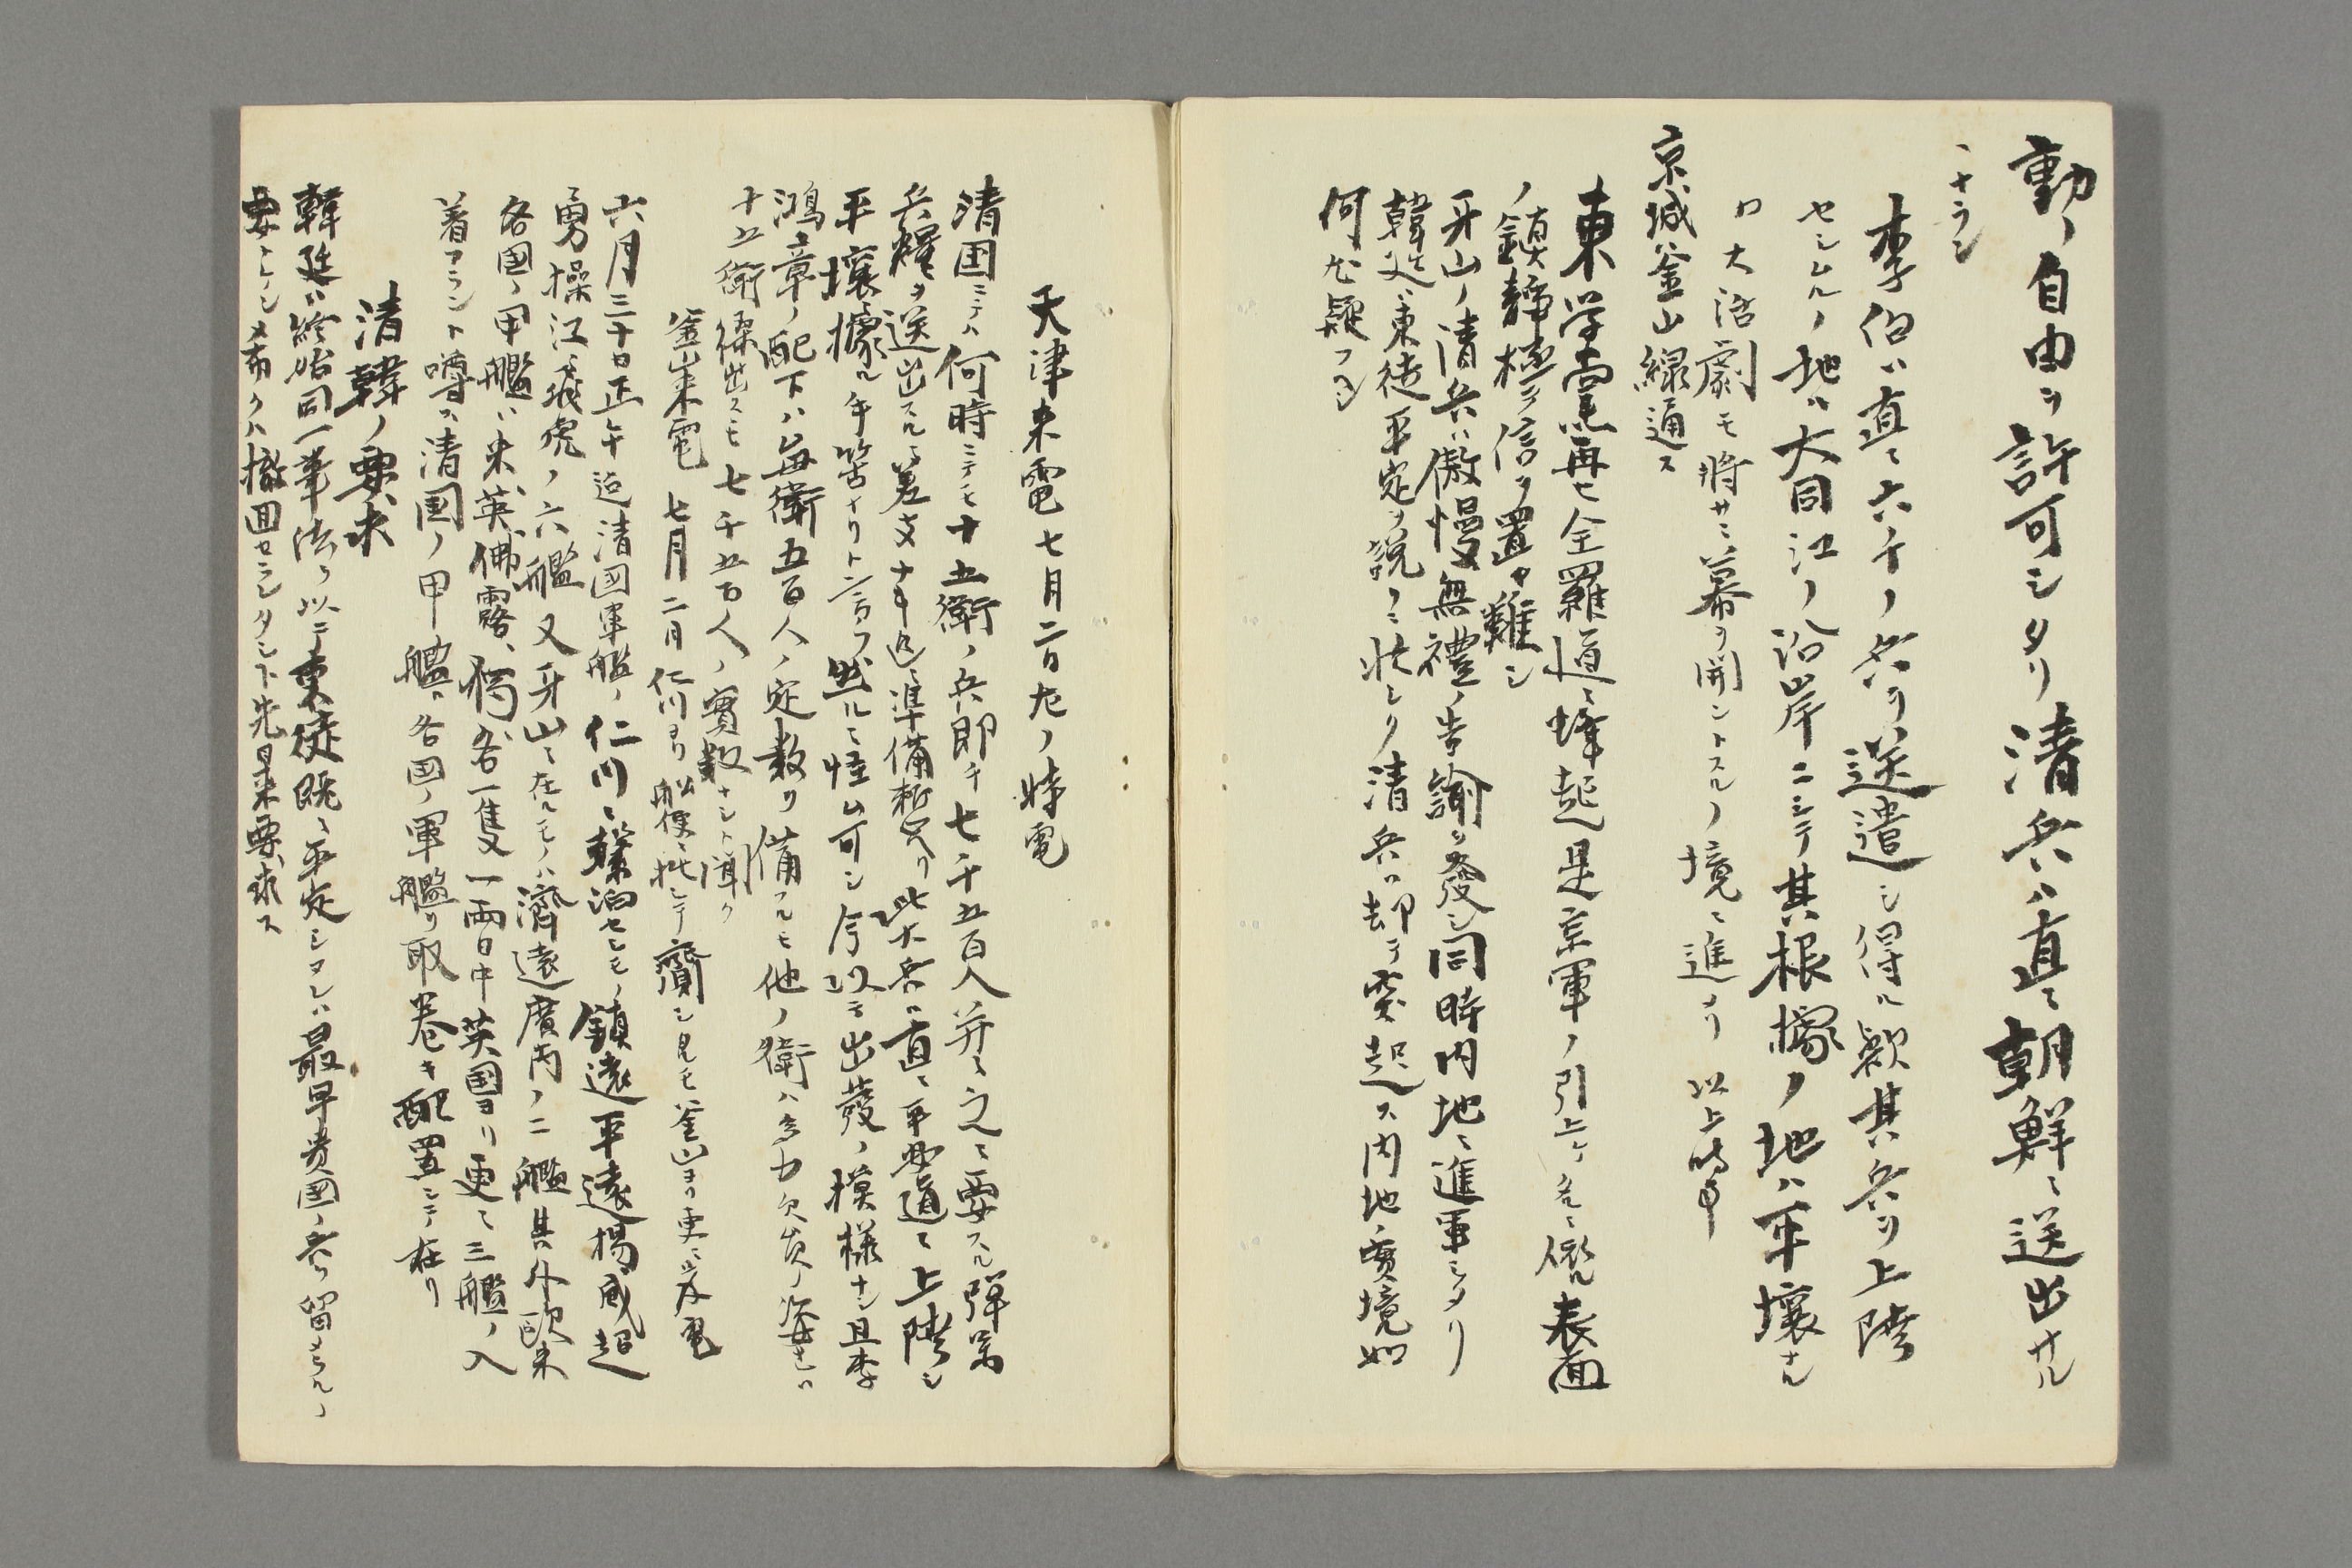 動ノ自由ヲ許可シタリ清兵ハ直ニ朝鮮ニ送出サル
ヽナラン
李伯ハ直ニ六千ノ兵ヲ送遣シ得ル歟其兵ヲ上陸
セシムルノ地ハ大同江ノ沿岸ニシテ其根據ノ地ハ平壤ナル
ロ大活劇モ將サニ幕ヲ開ントスルノ境ニ進メリ 以上時事
京城釜山線通ス
東学黨再ヒ全羅道ニ蜂起是京軍ノ引上ケタルニ依ル表面
ノ鎮静極テ信ヲ置キ難シ
牙山ノ清兵ハ傲慢無禮ノ告諭ヲ發シ同時内地ニ進軍シタリ
韓廷ハ東徒平定ヲ説クニ忙シク清兵ハ却テ突起ス内地ノ實境如
何尤疑フヘシ
天津来電七月二日左ノ特電
清国ニテハ何時ニテモ十五衛ノ兵即チ七千五百人并ニ之ニ要スル彈薬
兵糧ヲ送出スルニ差支ナキ迠ニ準備整ヘリ此大兵ハ直ニ平安道ニ上陸シ
平壤ニ據ル手筈ナリト言フ然ルニ怪ム可シ今以テ出發ノ模様ナシ且李
鴻章ノ配下ハ毎衛五百人ノ定数ヲ備フルモ他ノ衛ハ多カ欠员ノ姿ナレハ
十五衛繰出スモ七千五百人ノ實数ナシト聞ク
釜山来電 七月二日仁川ヨリ船便ニ托シテ齎シ見モ釜山ヨリ更ニ發電
六月三十日正午迠清國軍艦ノ仁川ニ繋泊セシモノ鎮遠平遠揚威超
勇操江飛虎ノ六艦又牙山ニ在ルモノハ濟遠廣丙ノ二艦其外欧米
各国ノ甲艦ハ米、英、佛、露、獨、各一隻又一両日中英国ヨリ更ニ三艦ノ入
着アラント噂ス清国ノ甲艦ハ各国ノ軍艦ヲ取巻キ配置シテ在リ
清韓ノ要求
韓廷ハ終始同一筆法ヲ以テ東徒既ニ平定シタレハ最早貴國ノ兵ヲ留メラルヽノ
要ナシ希クハ撤回セラレタシト先日来要求ス